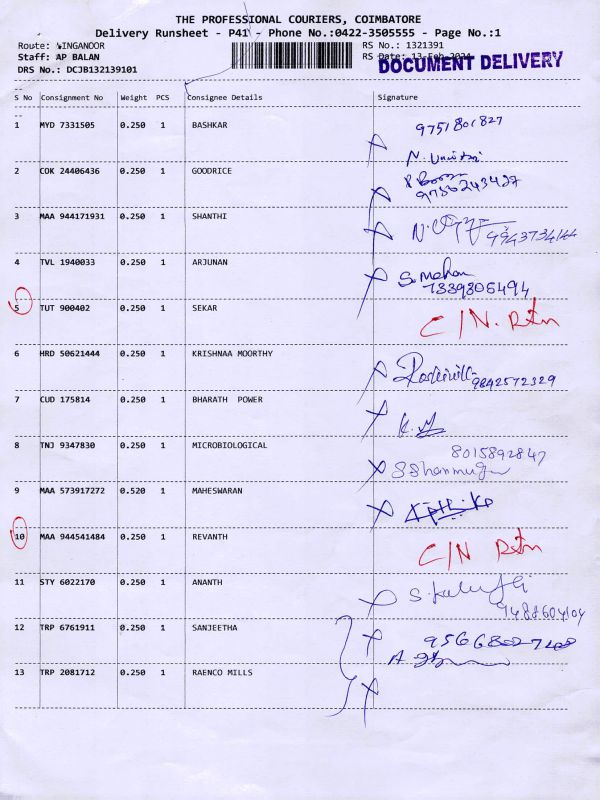 THE PROFESSIONAL COURIERS, COIMBATORE
Delivery Runsheet - P41 - Phone No.:0422-3505555 - Page No.:1
Route: WINGANOOR
RS No.: 1321391
Staff: AP BALAN
RS Date: 13-Feb-2024
DOCUMENT DELIVERY
DRS No.: DCJB132139101
S No Consignment No Weight PCS Consignee Details Signature
1 MYD 7331505 0.250 1 BASHKAR 9751801827
2 COK 24406436 0.250 1 GOODRICE
3 MAA 944171931 0.250 1 SHANTHI
4 TVL 1940033 0.250 1 ARJUNAN S. Mohan
7339806494
5 TUT 900402 0.250 1 SEKAR C/N. Rtn
6 HRD 50621444 0.250 1 KRISHNAA MOORTHY 9842572329
7 CUD 175814 0.250 1 BHARATH POWER
8 TNJ 9347830 0.250 1 MICROBIOLOGICAL 8015892847
S Shanmuga
9 MAA 573917272 0.520 1 MAHESWARAN
10 MAA 944541484 0.250 1 REVANTH C/N Rtn
11 STY 6022170 0.250 1 ANANTH
9488604104
12 TRP 6761911 0.250 1 SANJEETHA
13 TRP 2081712 0.250 1 RAENCO MILLS